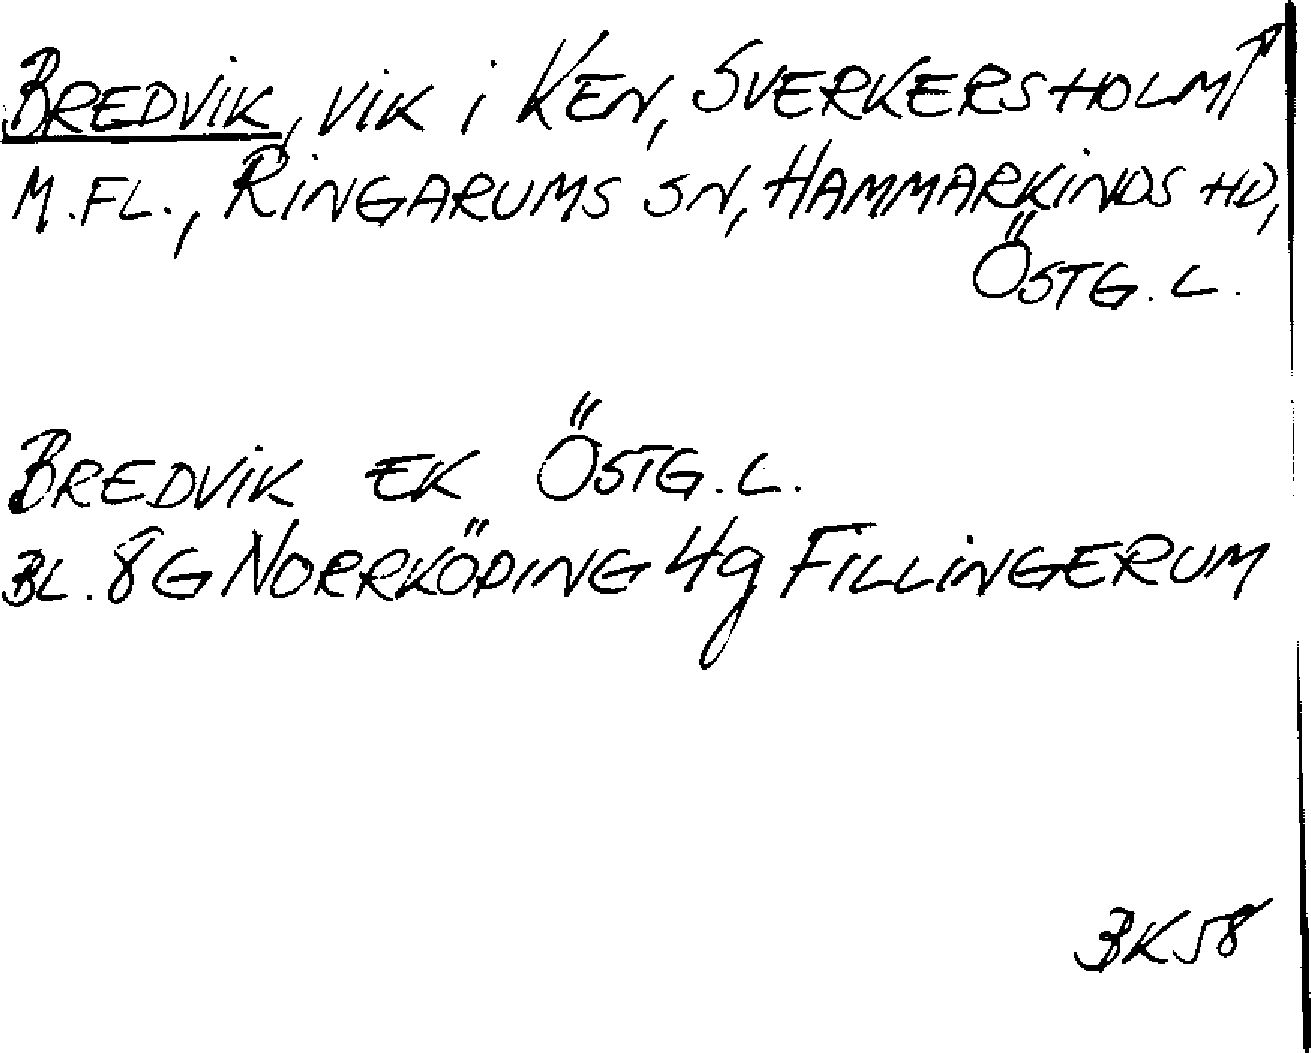 BREDVIK, VIK i KEN, SVERKERSHOLM
M.FL., RINGARUMS SN, HAMMARKINDS HD,
ÖSTG.L.
BREDVIK EK ÖSTG.L.
BL. 8G NORRKÖPING 4g FILLINGERUM
BK58